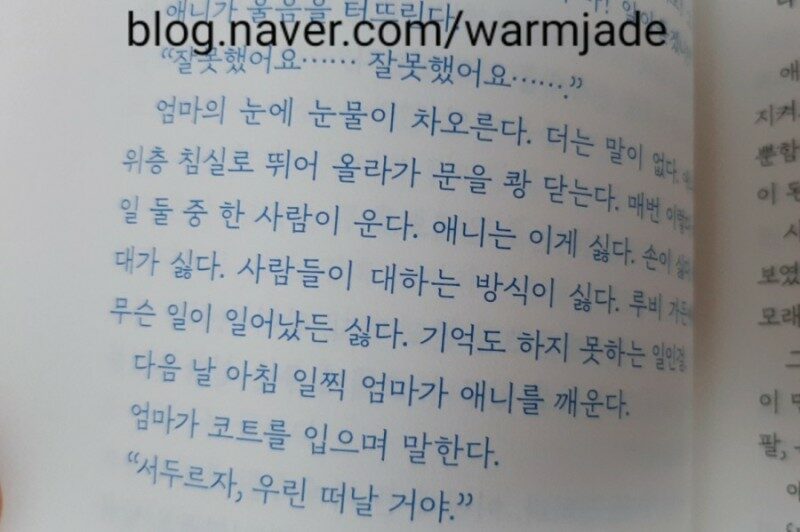 애니가 울음을 터뜨린다.
blog.naver.com/warmjade
“잘못했어요…… 잘못했어요…….”
엄마의 눈에 눈물이 차오른다. 더는 말이 없다.
위층 침실로 뛰어 올라가 문을 쾅 닫는다. 매번
일 둘 중 한 사람이 운다. 애니는 이게 싫다. 손이
대가 싫다. 사람들이 대하는 방식이 싫다. 루비
무슨 일이 일어났든 싫다. 기억도 하지 못하는 일인걸.
다음 날 아침 일찍 엄마가 애니를 깨운다.
엄마가 코트를 입으며 말한다.
“서두르자, 우린 떠날 거야.”
애
지켜
뿐함
이 된
보였
모래
그
이
팔,